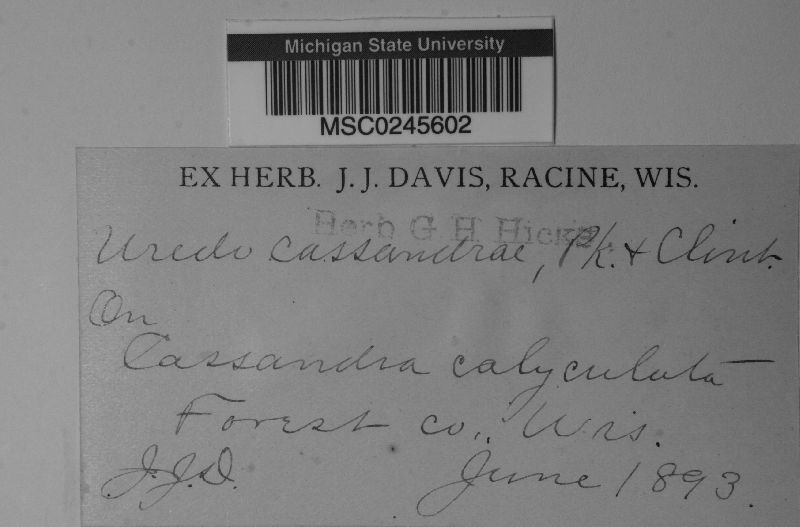 Michigan State University
MSC0245602
EX HERB. J. J. DAVIS, RACINE, WIS.
Herb G H Hicks.
Uredo cassandrae, Pk. & Clint.
On
Cassandra calyculata
Forest co., Wis.
J.J.D. June 1893.